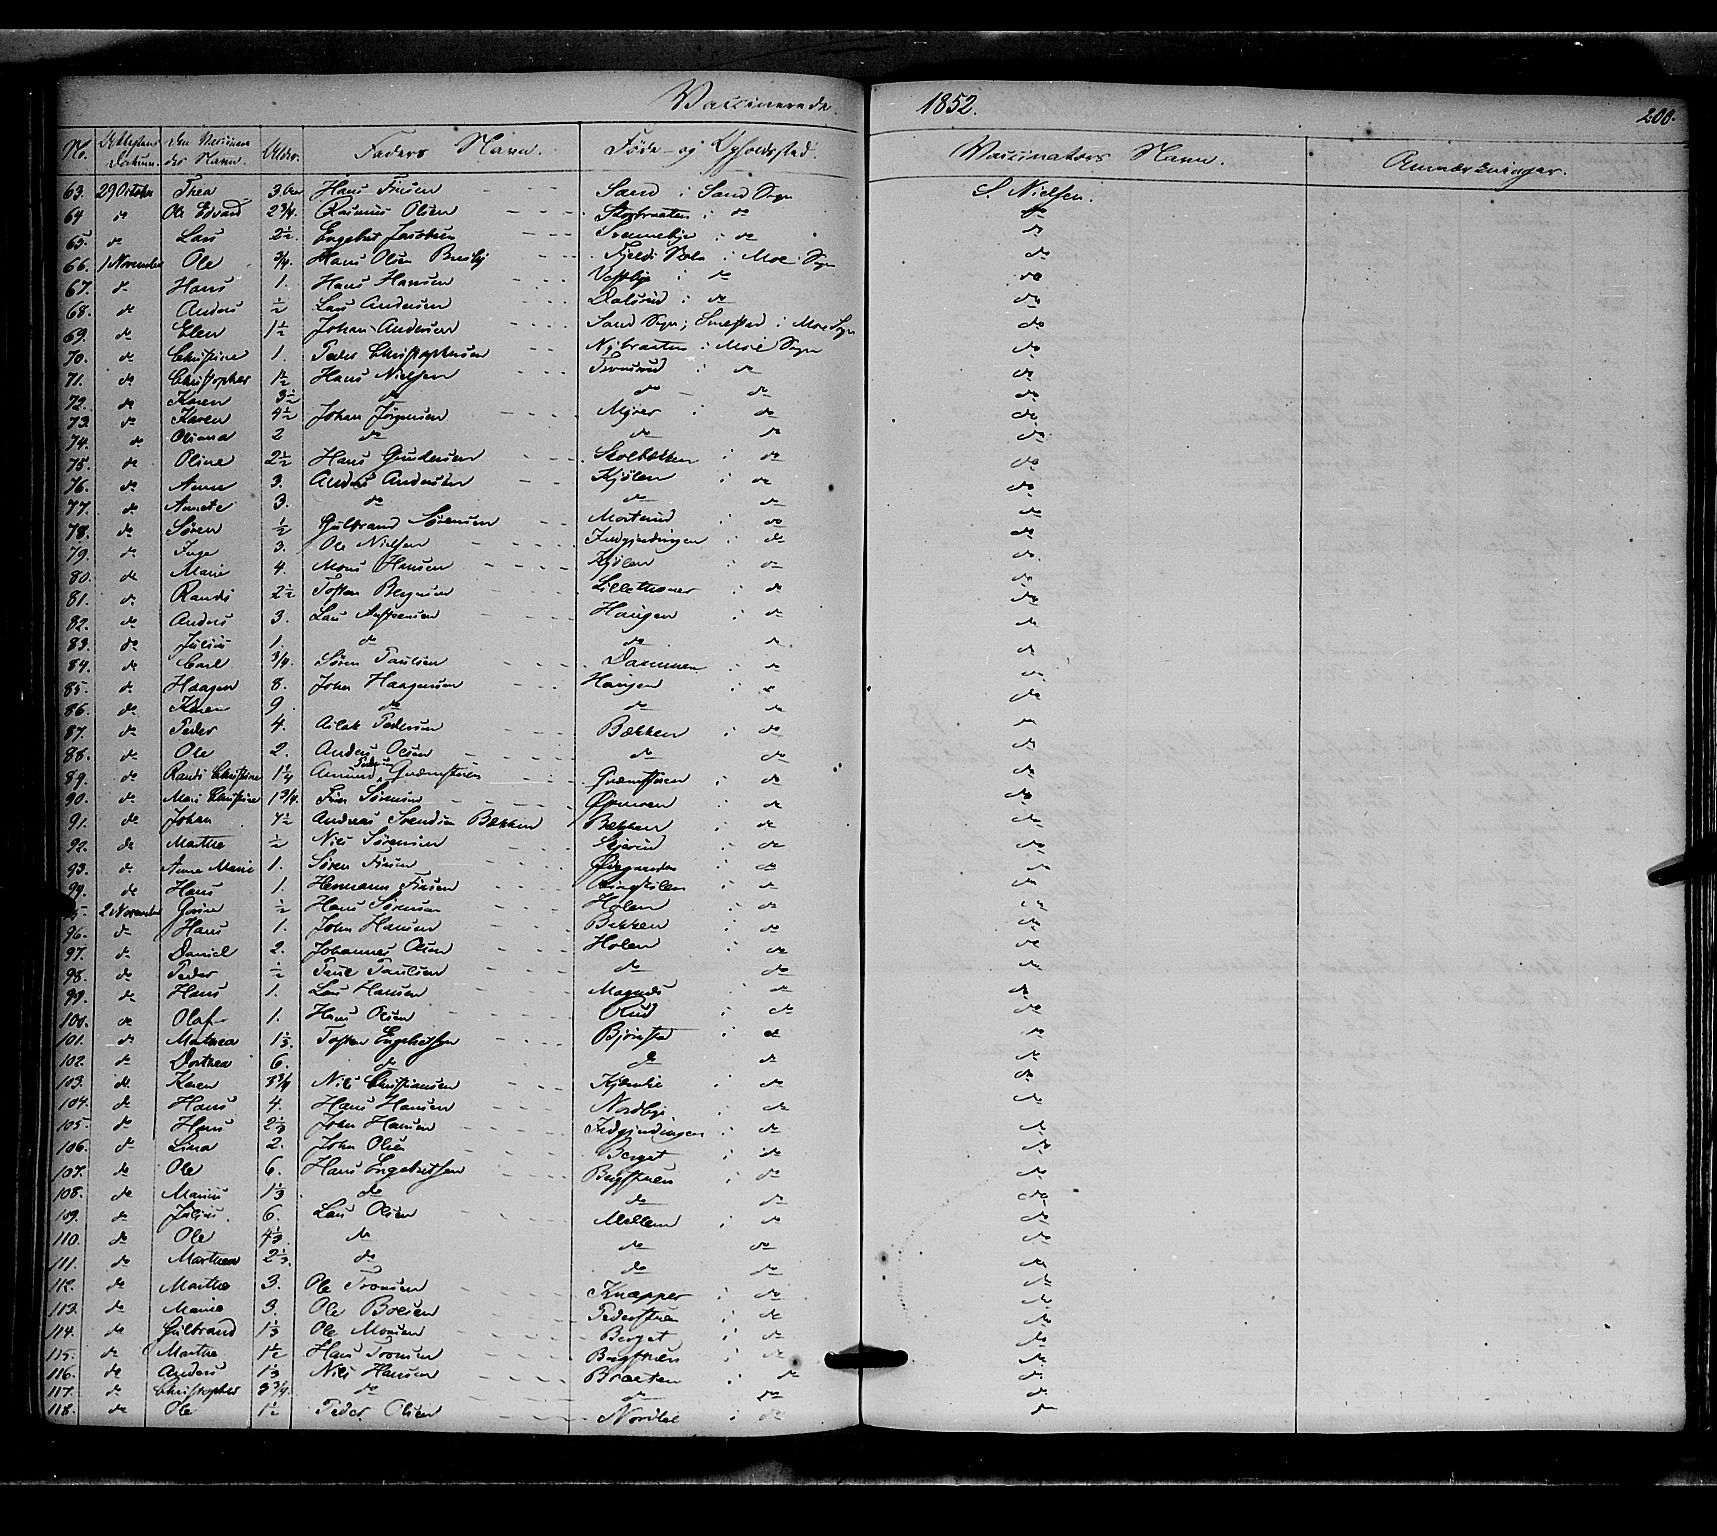 Vaccinerede 1852. 200.
No. Attestens Datum. Den Vaccineredes Navn. Alder. Faders Navn. Føde- og Opholdssted. Vaccinators Navn. Anmærkninger.
63. 29 October Thea 3 Aar Hans Finsen Sand i Sand Sogn S. Nielsen.
64 do Ole Edvard 2 3/4. Rasmus Olsen i do do
65. do Lars 2 1/2. Engebret Jacobsen i do do
66. 1 November Ole 3/4. Hans Olsen i Moe Sogn do
67. do Hans 1. Hans Hansen Vestbye i do do
68. do Anders 1/2 Lars Andersen Dalsrud i do do
69. do Elen 1 1/2 Johan Andersen Sand Sogn; i Moe Sogn do
70. do Christine 1. Peder Christophersen Nybraaten i Moe Sogn do
71. do Christopher 1 1/2 Hans Nielsen i do do
72. do Karen 3 1/2 do do do do
73. do Karen 4 1/2 Johan Jørgensen Myrer i do do
74. do Oliana 2 do do do do
75. do Oline 2 1/2 Hans Gundersen i do do
76. do Anne 3. Anders Andersen Kjølen i do do
77. do Annete 3. do do do do
78. do Søren 1/2 Gulbrand Sørensen Morterud i do do
79. do Inge 3. Ole Nielsen i do do
80. do Marie 4. Mons Hansen Kjølen i do do
81. do Randi 2 1/2 Tosten i do do
82. do Anders 3. Lars Haugen i do do
83. do Julius 1. do do do do
84. do Carl 3/4. Søren Paulsen Dammen i do do
85. do Haagen 8. John Haagensen Haugen i do do
86. do Karen 9. do do do do
87. do Peder 4. Aslak Pedersen Bækken i do do
88. do Ole 2. Anders Olsen do do do
89. do Randi Christine 1 1/4 Amund Pedersen Græmstuen Græmstuen i do do
90. do Mari Christine 1 3/4. Finn Sørensen i do do
91. do Johan 4 1/2 Andreas Svendsen Bækken Bækken i do do
92. do Marthe 1/2 Niels Sørensen i do do
93. do Anne Marie 1. Søren Finsen Ødegaarden i do do
94. do Hans 1. Hermann Finsen Ringkilen i do do
95. 2 November 1/2 Hans Sørensen Holen i do do
96. do Hans 1. John Hansen Bekken i do do
97. do Daniel 2. Johannes Olsen Holen i do do
98. do Peder 1/2 Paul Paulsen do do do
99. do Hans 1. Lars Hansen i do do
100. do Olaf 1. Hans Olsen Rud i do do
101. do Mathea 1 1/3 Tosten Engebretsen Bjørnstad i do do
102. do Dorthea 6. do do do do
103. do Karen 3 3/4 Niels Christiansen i do do
104. do Hans 4. Hans Hansen Nordbye i do do
105. do Hans 2 1/3 John Hansen i do do
106. do Lina 2. John Olsen Berget i do do
107. do Ole 6. Hans Engebretsen Bergstuen i do do
108. do Marius 1 1/3 do do do do
109. do Julius 6. Lars Olsen Mellem i do do
110. do Ole 4 1/3 do do do do
111. do Marthea 2 1/3. do do do do
112. do Marthe 3. Ole Tronsen Knapper i do do
113. do Marie 3. Ole Boesen Pederstuen i do do
114. do Gulbrand 1 1/3 Ole Monsen Berget i do do
115. do Marthe 1 1/2 Hans Tronsen Bergstuen i do do
116. do Anders 1 1/3 Niels Hansen Braaten i do do
117. do Christopher 3 3/4. do do do do
118. do Ole 1 1/2 Peder Olsen Nordlie i do do